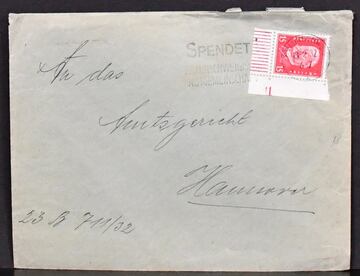 SPENDET
An das
Amtsgericht
Hannover
23 B 711/32